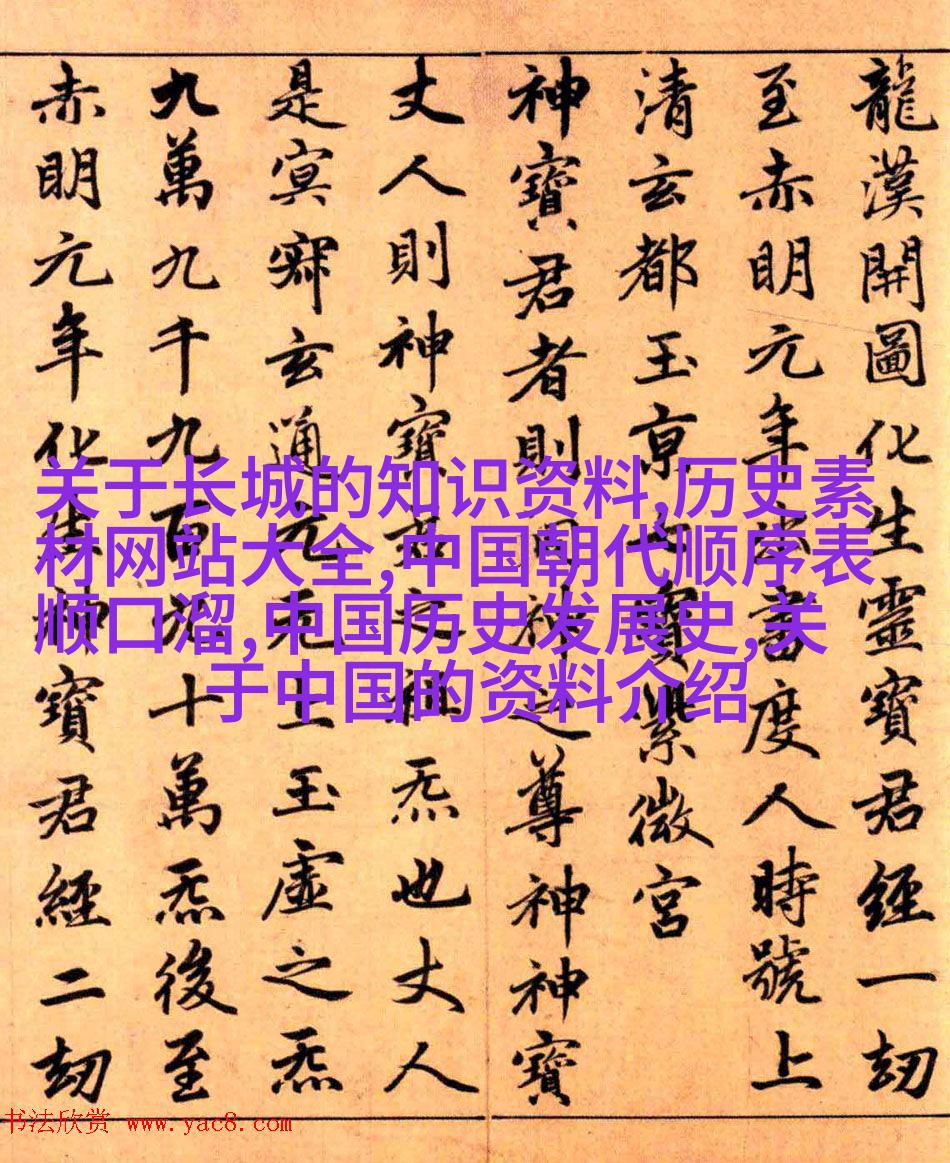 龍漢開圖化生靈寶君經一劫
至赤明元年出書度人時號上
清玄都玉京七寶紫微宮
神寶君者則洞神之尊神神寶
丈人則神寶君之祖炁也丈人
是冥寂玄通元无上玉虛之炁
九萬九千九百九十萬炁後至
赤明元年化生神寶君經二劫
关于长城的知识资料,历史素
材网站大全,中国朝代顺序表
顺口溜,中国历史发展史,关
于中国的资料介绍
书法欣赏 www.yac8.com